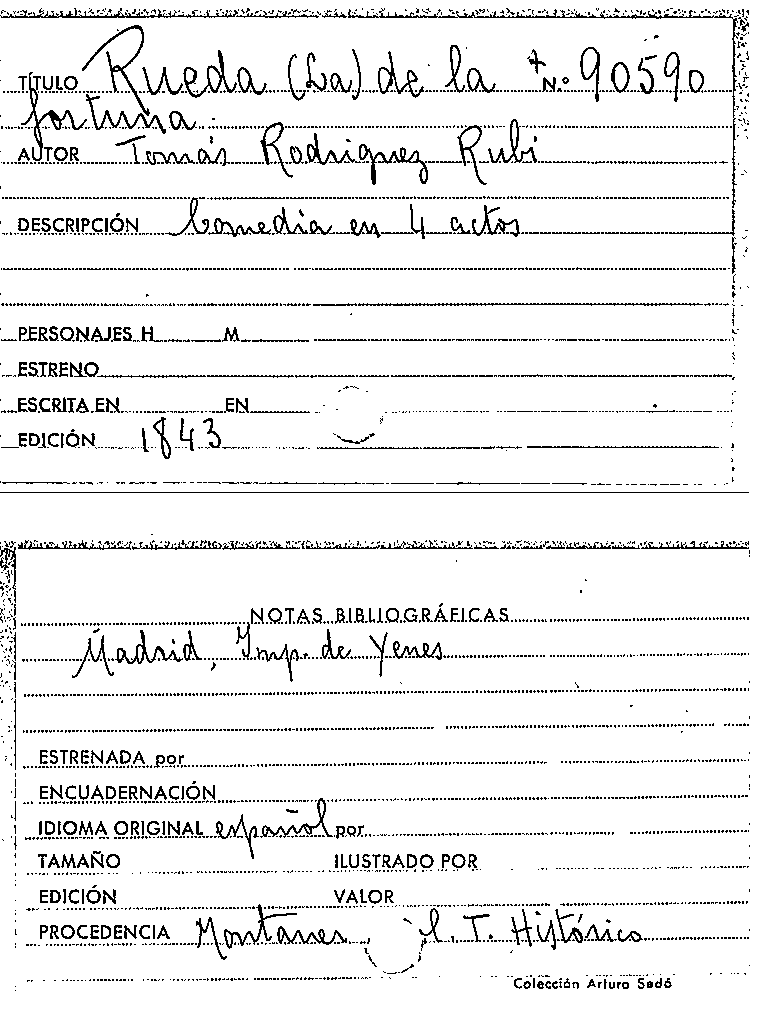 TÍTULO Rueda (La) de la + N.º 90590
fortuna.
AUTOR Tomás Rodriguez Rubi
DESCRIPCIÓN Comedia en 4 actos
PERSONAJES H M
ESTRENO
ESCRITA EN EN
EDICIÓN 1843
NOTAS BIBLIOGRÁFICAS
Madrid, Imp. de Yenes
ESTRENADA por
ENCUADERNACIÓN
IDIOMA ORIGINAL español por
TAMAÑO ILUSTRADO POR
EDICIÓN VALOR
PROCEDENCIA Montaner T. Histórico
Colección Arturo Sedó